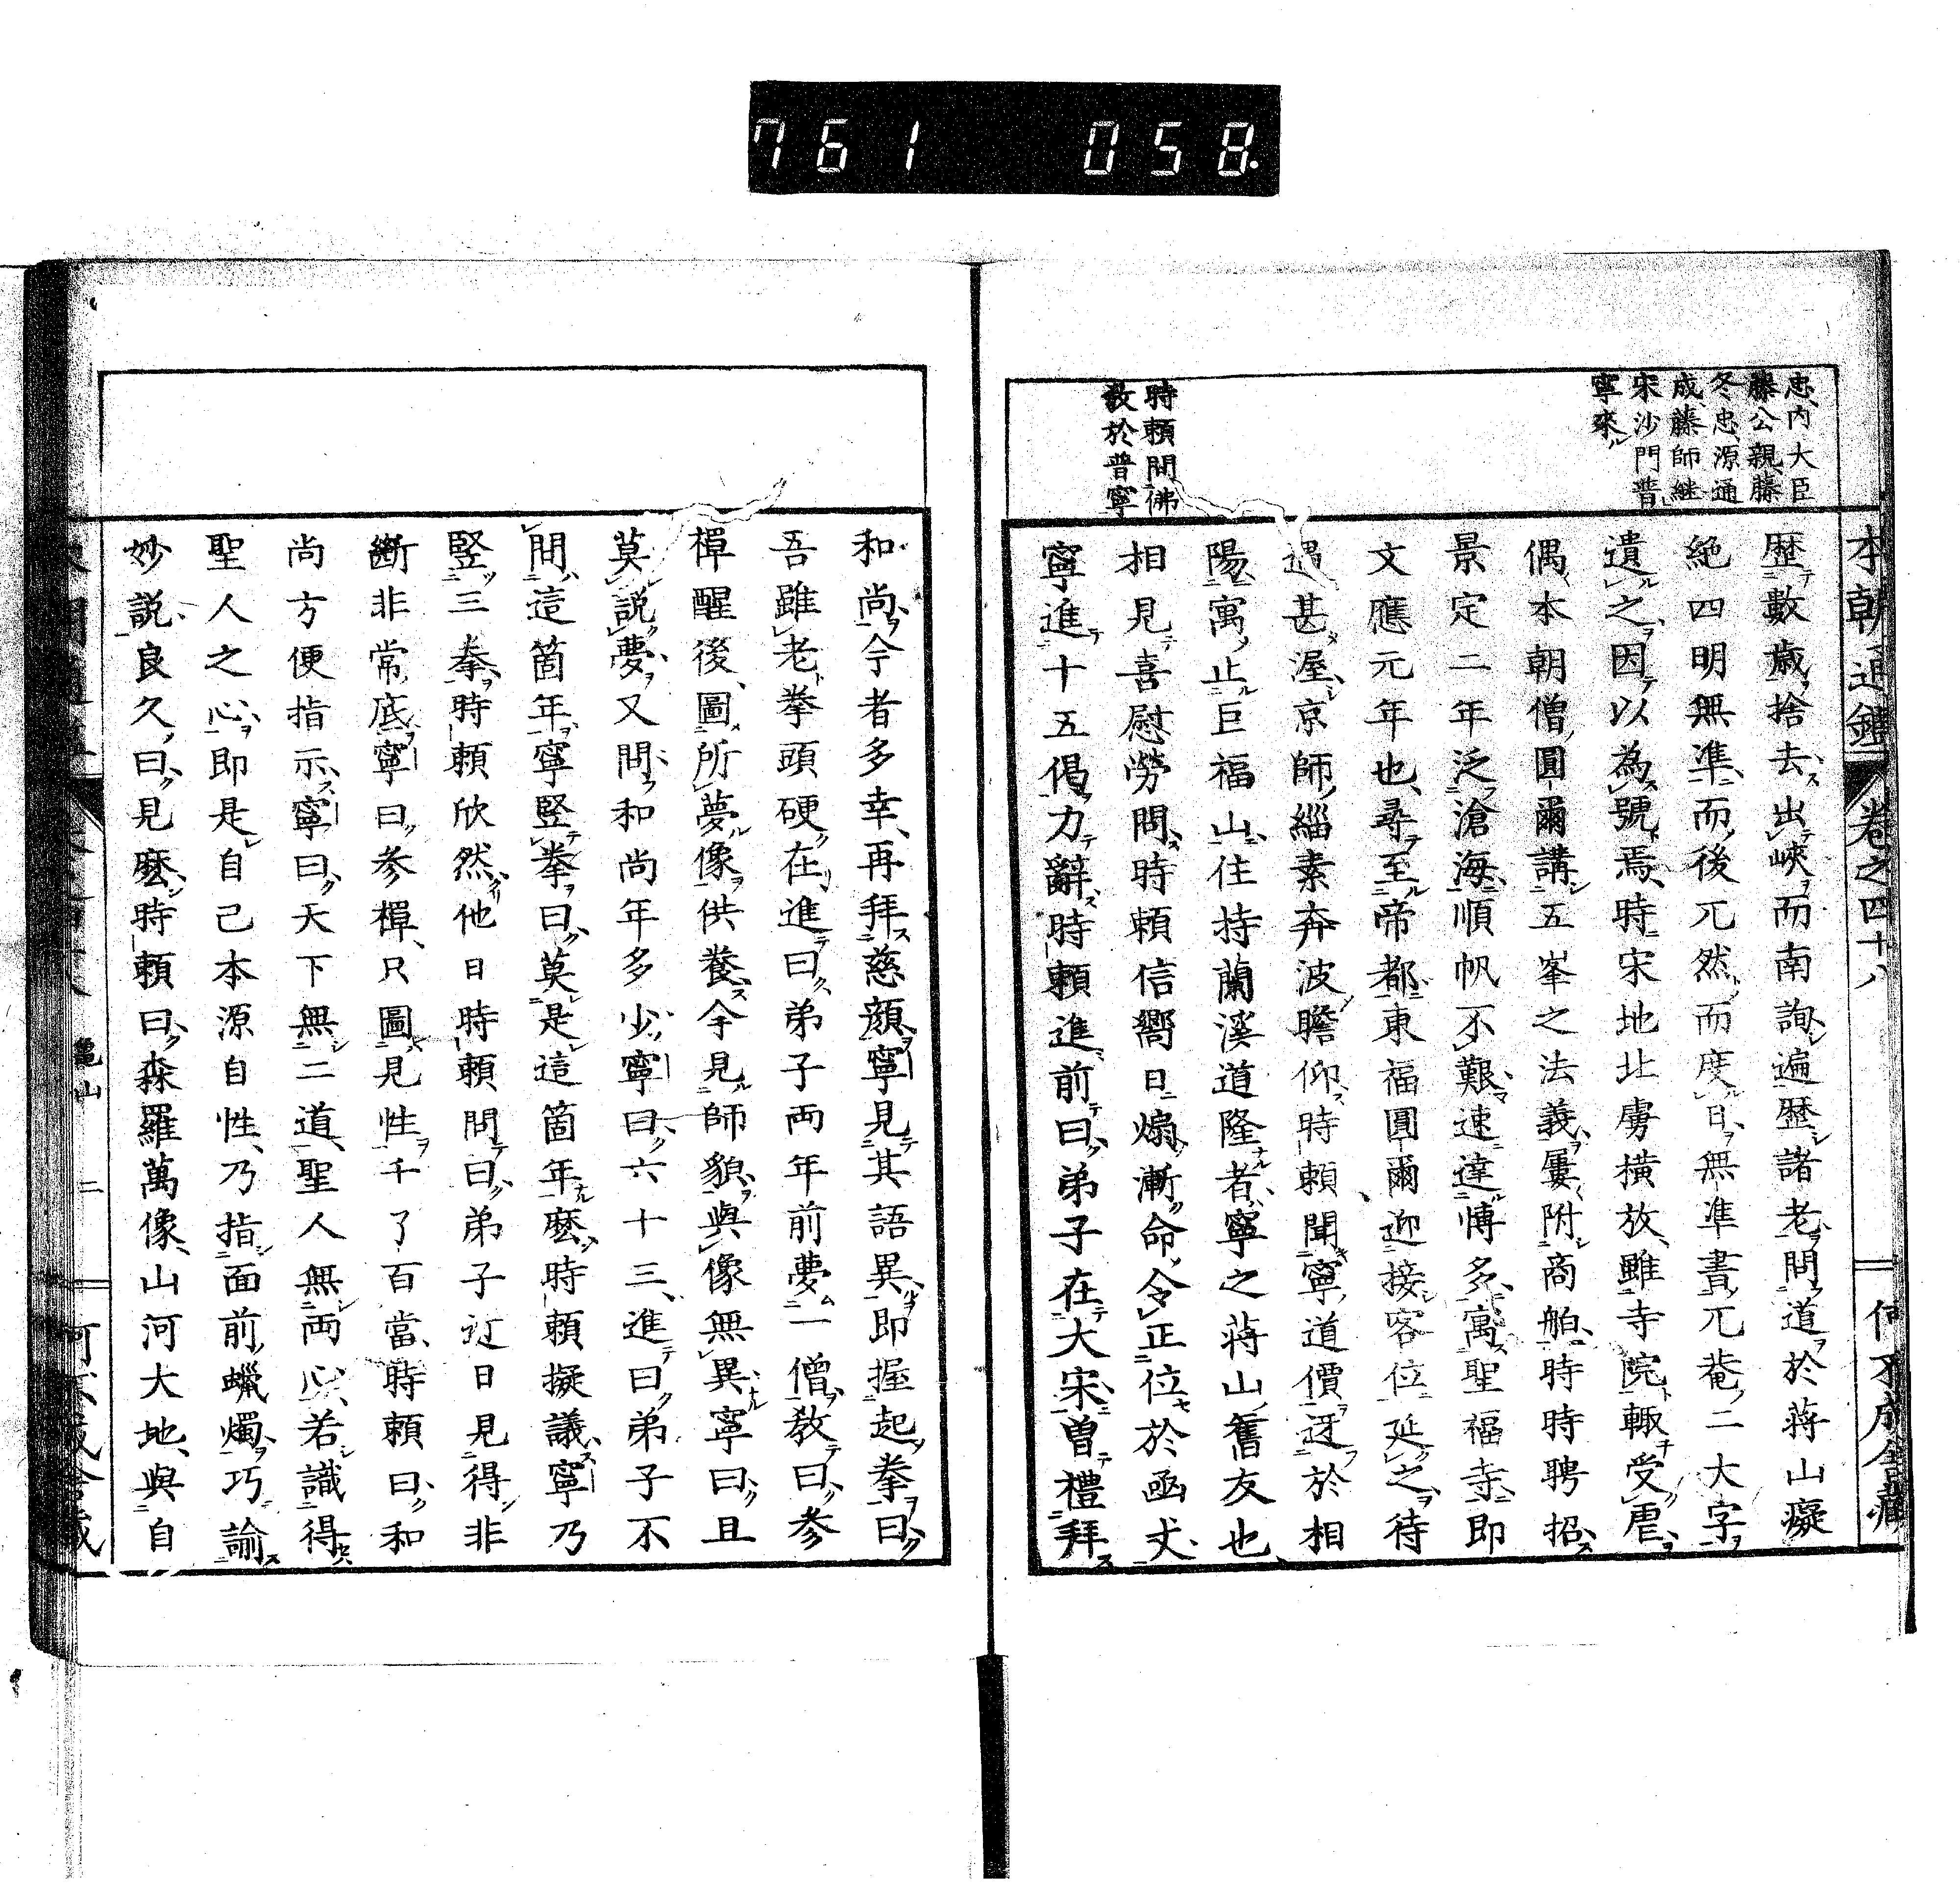 761 058.
本朝通鑑 卷之四十八 何不成舍藏
忠、內大臣
藤公親、藤
冬忠、源通
成、藤師継
宋沙門普
寧來
時賴問佛
敎於普寧
歷數歲捨去出峽而南詢遍歷諸老問道於蔣山癡
絕四明無準而後兀然而度日無準書兀菴二大字
遺之因以為號焉時宋地北虜橫放雖寺院輙受虐
偶本朝僧圓爾講五峯之法義屢附商舶時時聘招
景定二年泛滄海順帆不艱速達博多寓聖福寺即
文應元年也尋至帝都東福圓爾迎接客位延之待
遇甚渥京師緇素奔波瞻仰時賴聞寧道價迓於相
陽寓止巨福山住持蘭溪道隆者寧之蔣山舊友也
相見喜慰勞問時賴信嚮日煽漸命令正位於函丈
寧進十五偈力辭時賴進前曰弟子在大宋曾禮拜
和尚今者多幸再拜慈顏寧見其語異即握起拳曰
吾雖老拳頭硬在進曰弟子両年前夢一僧敎曰參
禪醒後圖所夢像供養今見師貌與像無異寧曰且
莫說夢又問和尚年多少寧曰六十三進曰弟子不
問這箇年寧竪拳曰莫是這箇年麽時賴擬議寧乃
竪三拳時賴欣然他日時賴問曰弟子近日見得非
斷非常底寧曰參禪只圖見性千了百當時賴曰和
尚方便指示寧曰天下無二道聖人無両心若識得
聖人之心即是自己本源自性乃指面前蠟燭巧諭
妙說良久曰見麽時賴曰森羅萬像山河大地與自
龜山 二